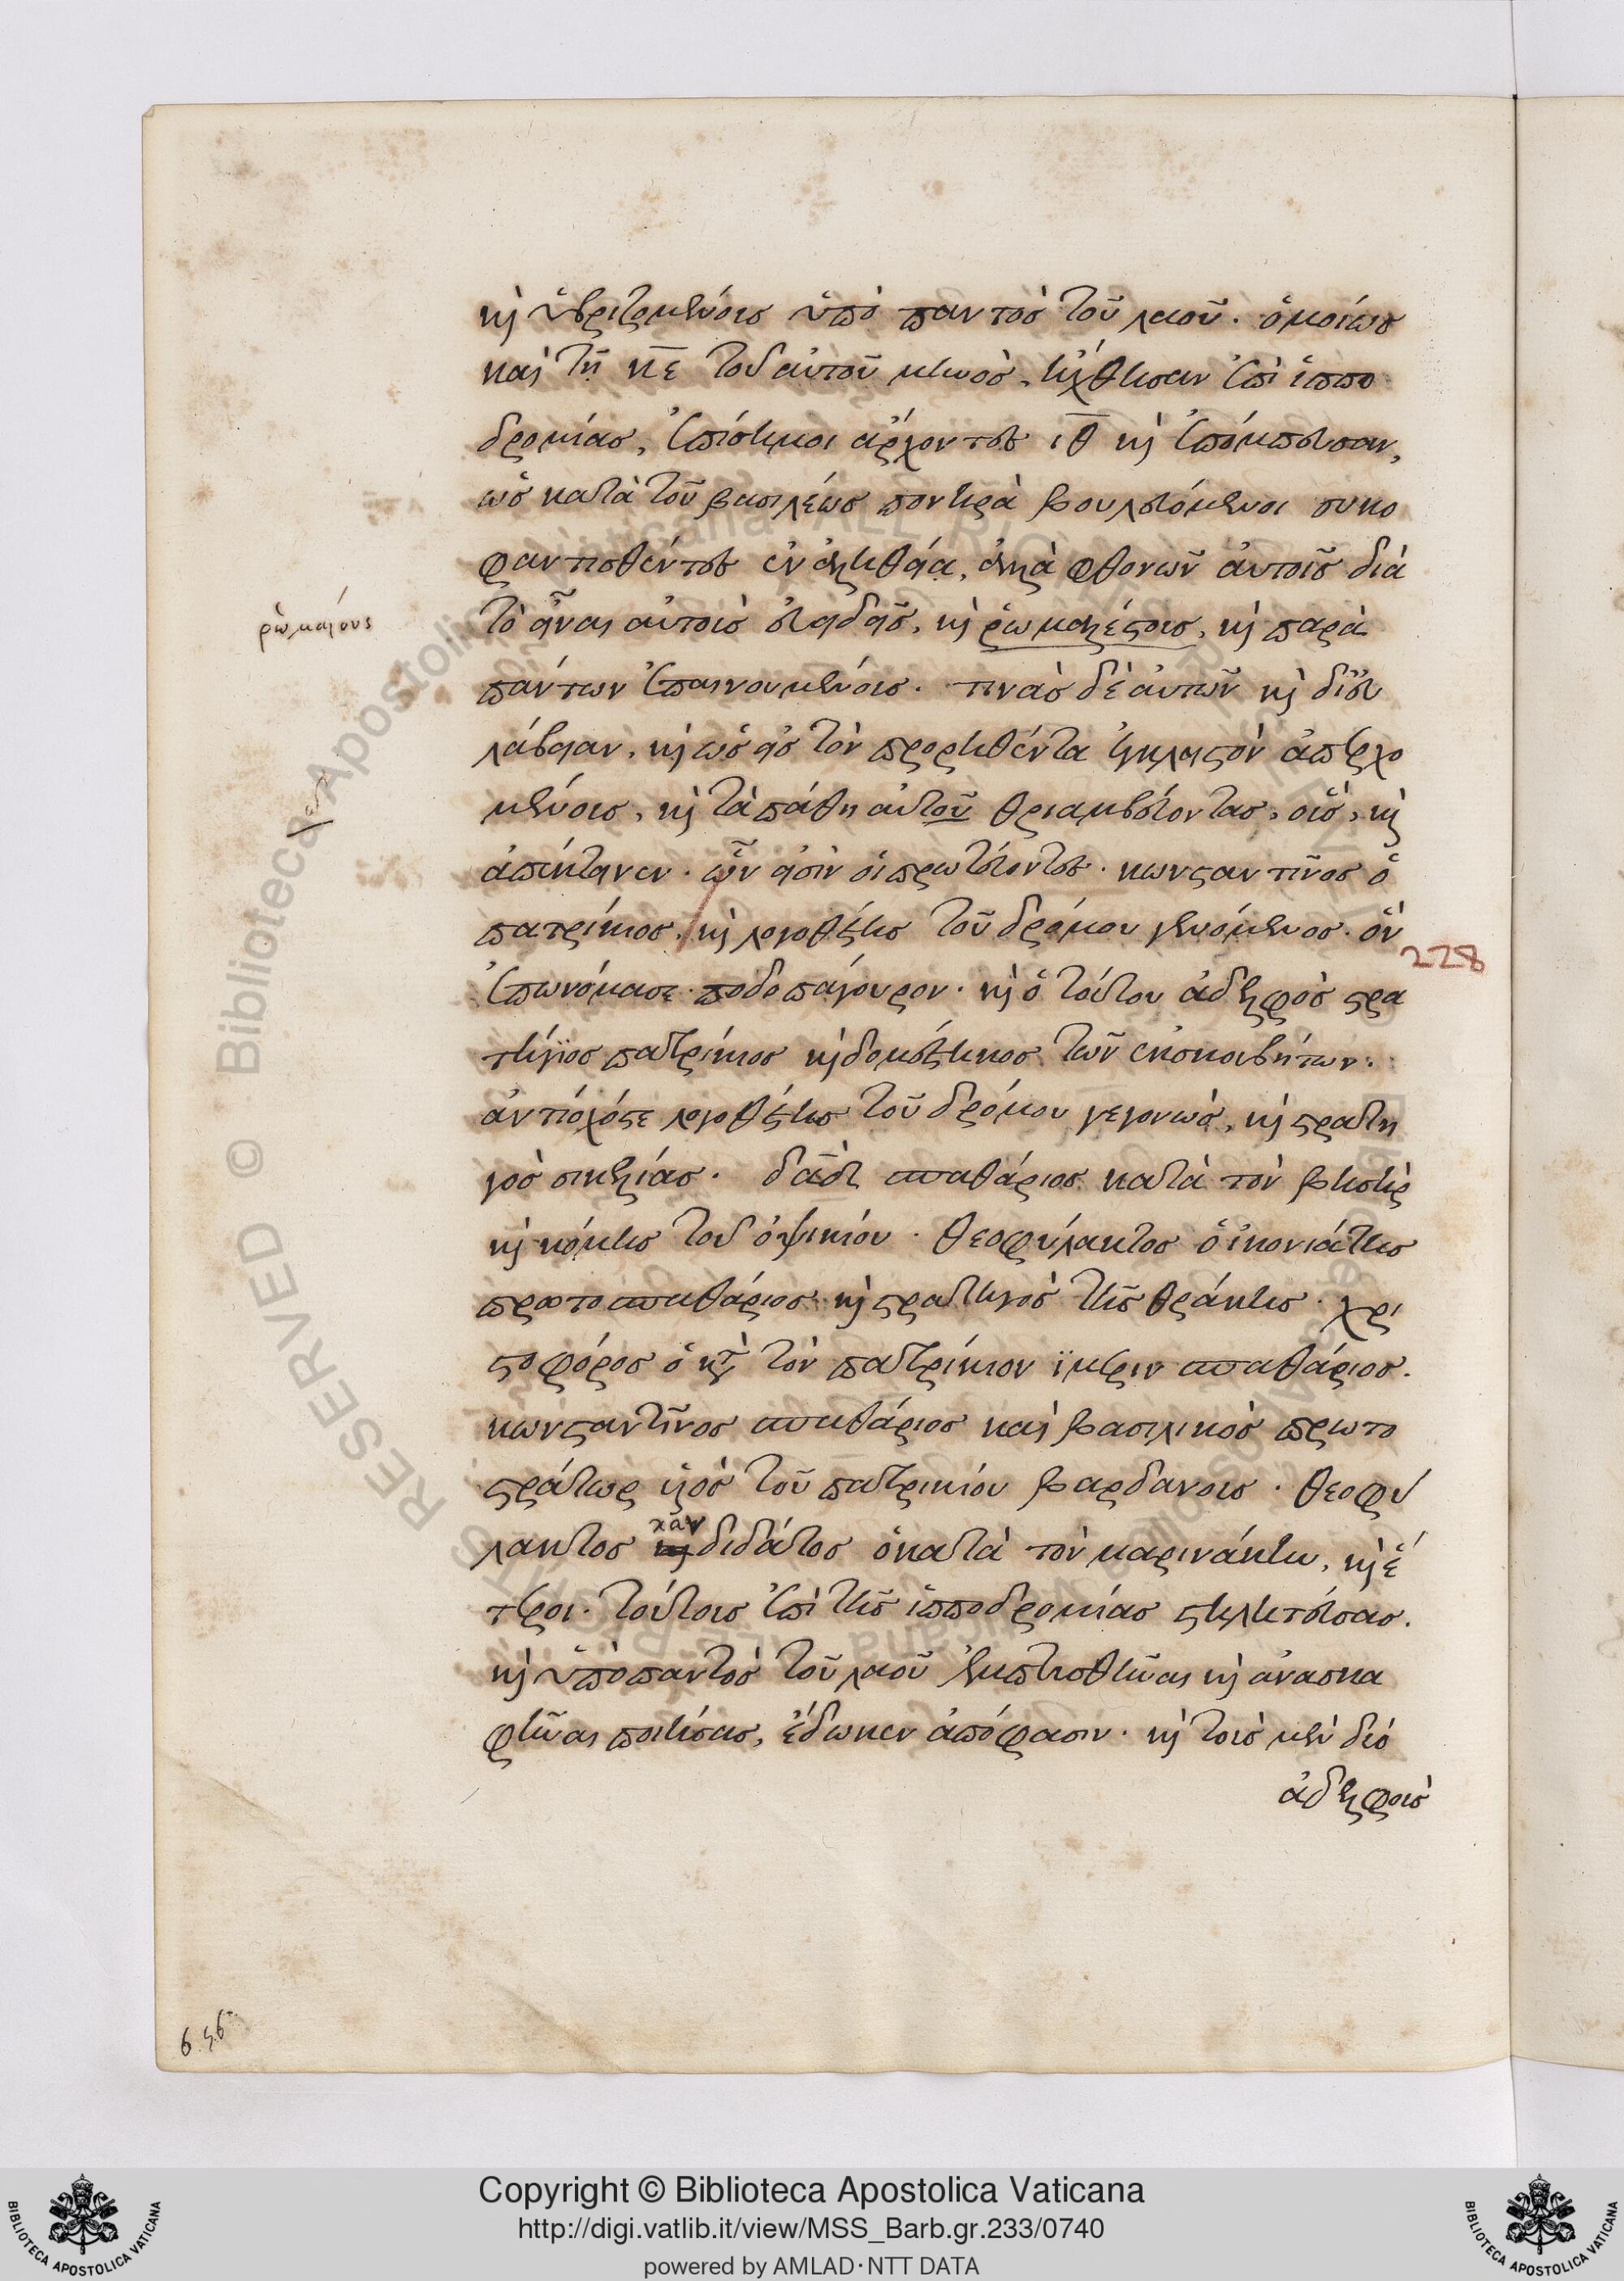 καὶ ὑβριζομένους ὑπὸ παντὸς τοῦ λαοῦ. ὁμοίως
καὶ τῇ κε τοῦ αὐτοῦ μηνὸς, ἤχθησαν ἐπὶ ἱππο
δρομίας, ἐπίσημοι ἄρχοντες ιθ καὶ ἐπόμπευσαν,
ὡς κατὰ τοῦ βασιλέως πονηρὰ βουλευόμενοι συκο
φαντισθέντες ἐν ἀληθεία, ἀλλὰ φθονῶν αὐτοῖς διὰ
ῥωμαίους
τὸ εἶναι αὐτοὺς εὐειδεῖς, καὶ ῥωμαλέστους, καὶ παρὰ
πάντων ἐπαινουμένους. τινὰς δὲ αὐτῶν καὶ δι' εὐ
λάβειαν, καὶ ὡς εἰς τὸν προρηθέντα ἔγκλειστὸν ἀπερχο
μένους, καὶ τὰ πάθη αὐτοῦ θριαμβεύοντας, οὓς, καὶ
ἀπέκτεινεν. ὧν εἰσὶν οἱ πρωτεύοντες. κωνσταντῖνος ὁ
πατρίκιος, καὶ λογοθέτης τοῦ δρόμου γενόμενος. ὃν
228
ἐπωνόμασε ποδοπάγουρον. καὶ ὁ τούτου ἀδελφὸς στρα
τήγιος πατρίκιος καὶ δομέστικος τῶν ἐκσκουβήτων.
ἀντίοχός τε λογοθέτης τοῦ δρόμου γεγονὼς, καὶ στρατη
γὸς σικελίας. δᾶδ σπαθάριος κατὰ τὸν βησὴρ
καὶ κόμης τοῦ ὀψικίου. θεοφύλακτος ὁ ἰκονιάτης
πρωτοσπαθάριος καὶ στρατηγὸς τῆς θράκης. χρι
στοφόρος ὁ κατὰ τὸν πατρίκιον ἵμεριν σπαθάριος.
κωνσταντῖνος σπαθάριος καὶ βασιλικὸς πρωτο
στράτωρ υἱὸς τοῦ πατρικίου βαρδανους. θεοφύ
λακτος κανδιδάτος ὁ κατὰ τὸν μαρινάκην, καὶ ἕ
τεροι. τούτους ἐπὶ τῆς ἱπποδρομίας στηλητεύσας.
καὶ ὑπὸ παντὸς τοῦ λαοῦ ἐμπτυσθῆναι καὶ ἀνασκα
φῆναι ποιήσας, ἔδωκεν ἀπόφασιν. καὶ τοὺς μὲν δύο
ἀδελφοὺς
Copyright © Biblioteca Apostolica Vaticana
http://digi.vatlib.it/view/MSS_Barb.gr.233/0740
powered by AMLAD·NTT DATA